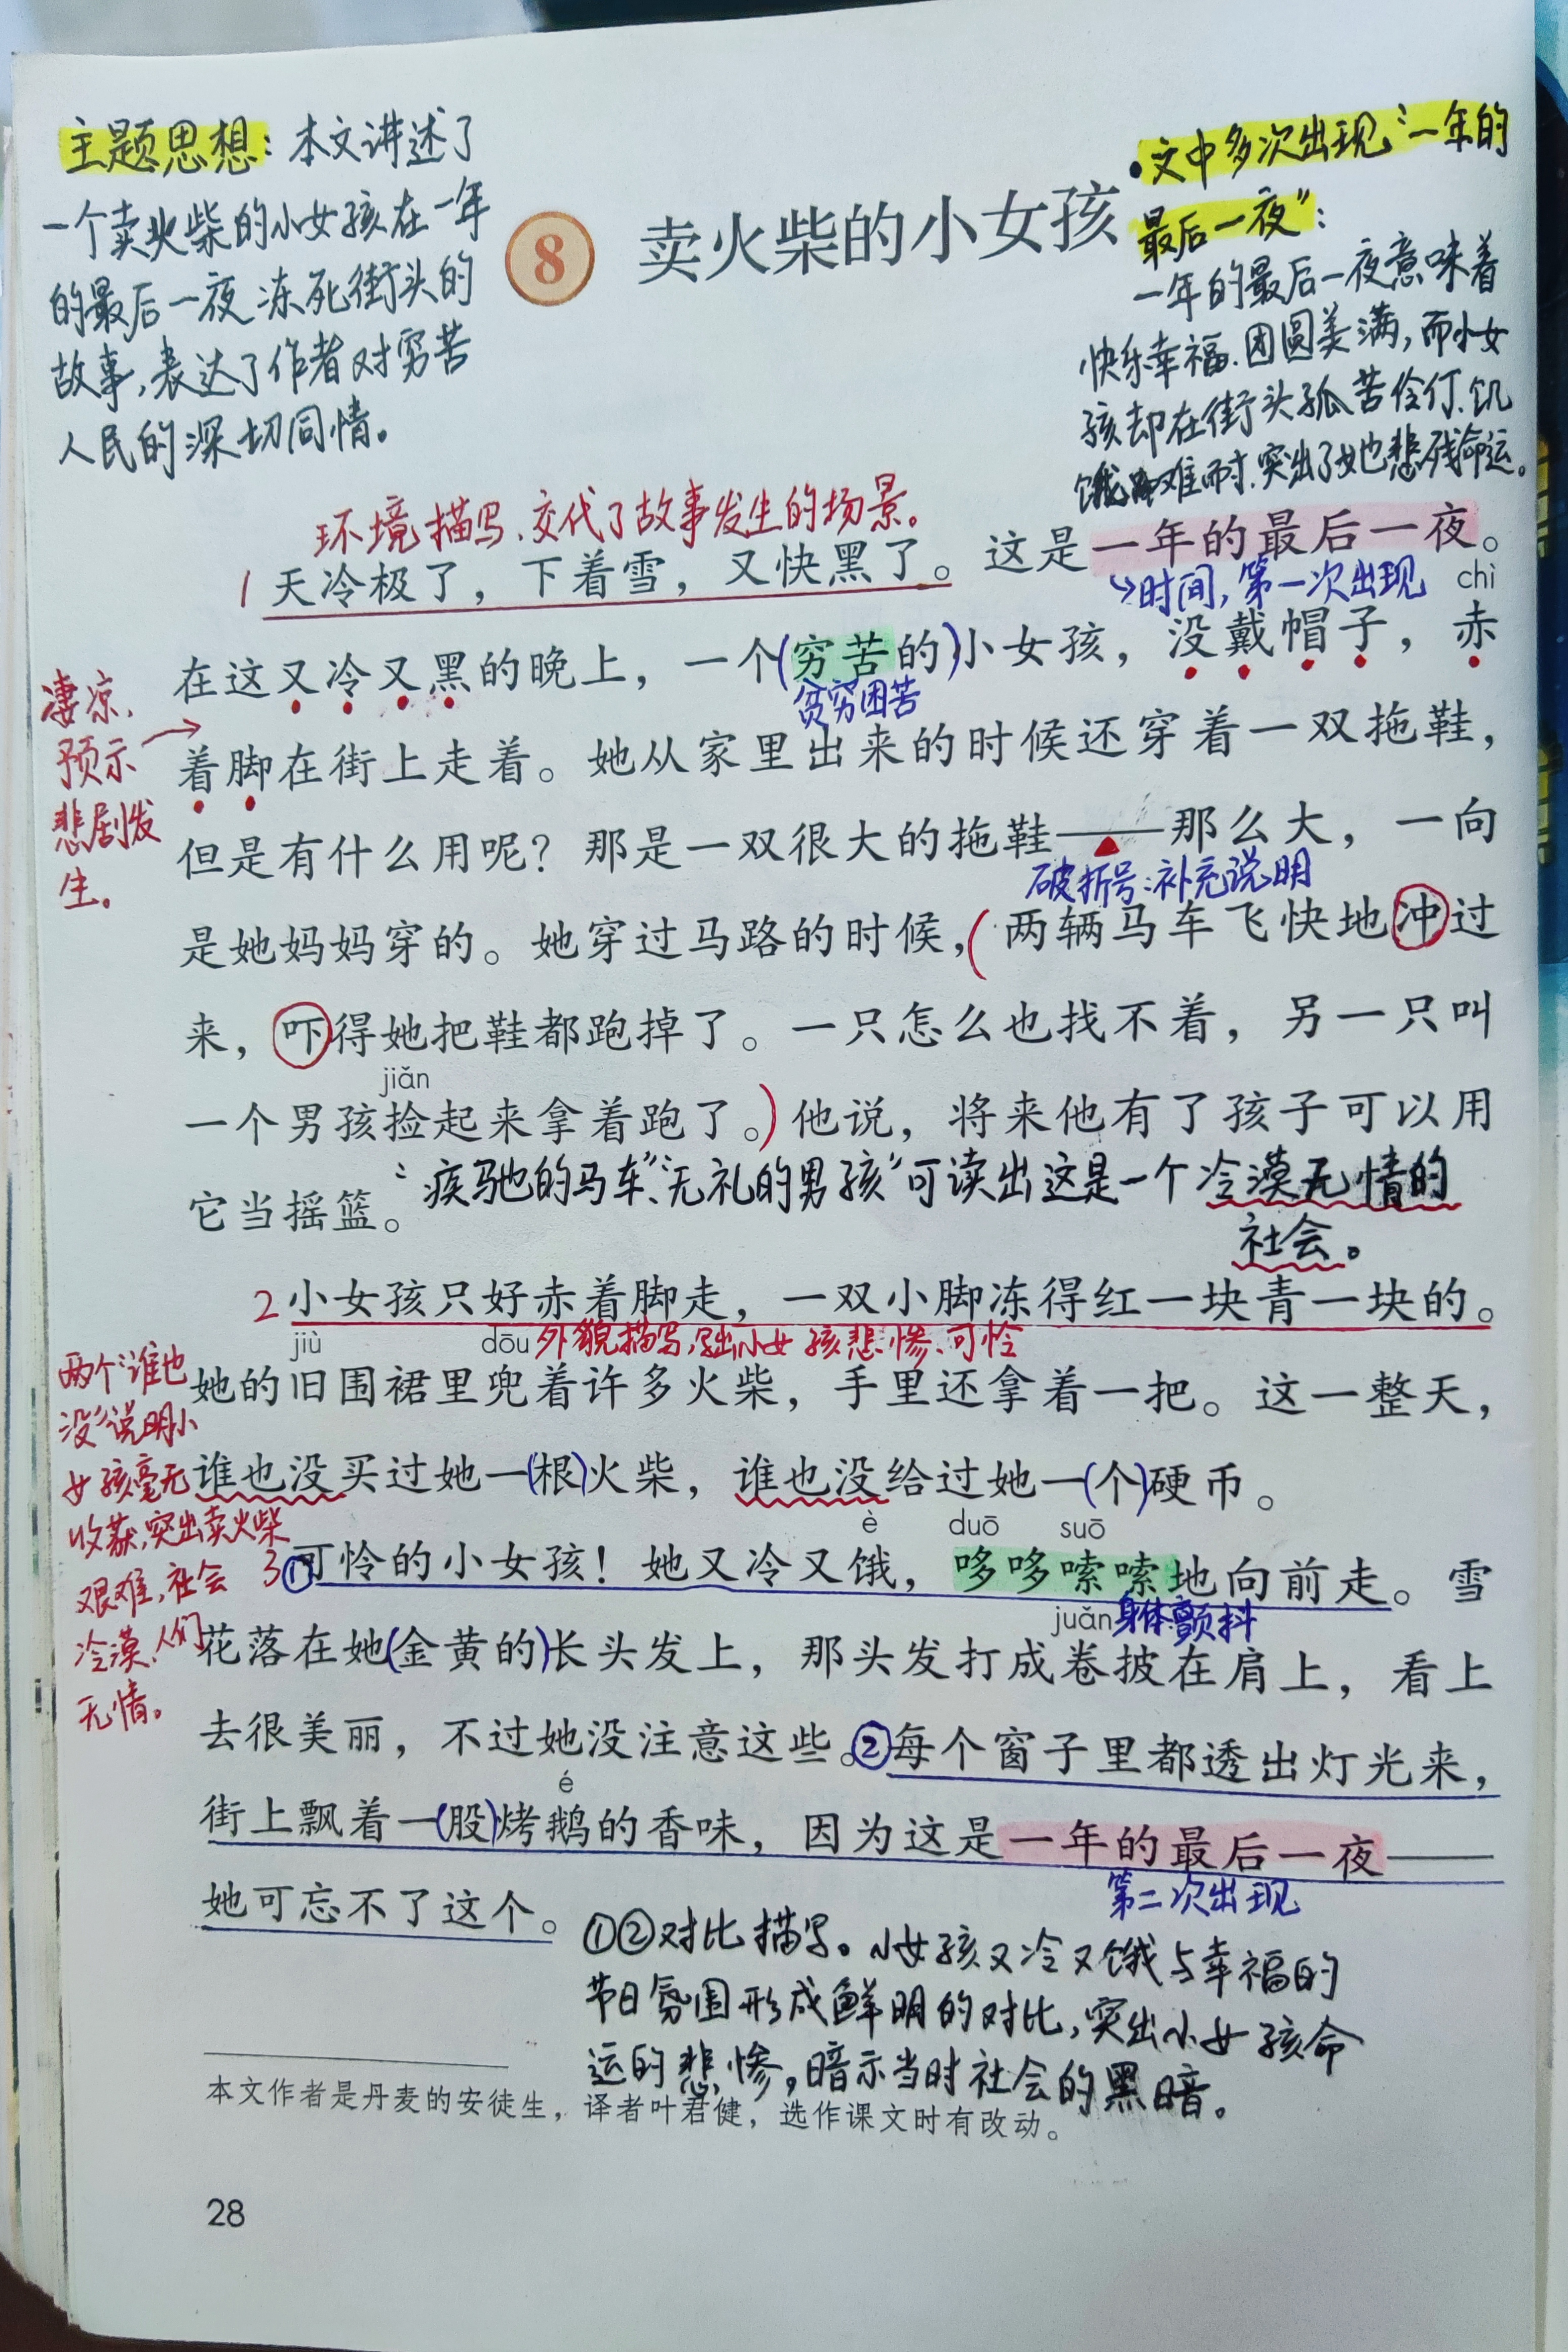 主题思想：本文讲述了
一个卖火柴的小女孩在一年
的最后一夜冻死街头的
故事，表达了作者对穷苦
人民的深切同情。
8 卖火柴的小女孩
·文中多次出现“一年的
最后一夜”：
一年的最后一夜意味着
快乐幸福、团圆美满，而小女
孩却在街头孤苦伶仃、饥
饿难耐，突出了她悲残命运。
环境描写、交代了故事发生的场景。
1 天冷极了，下着雪，又快黑了。这是一年的最后一夜。
→时间，第一次出现
chì
在这又冷又黑的晚上，一个(穷苦的)小女孩，没戴帽子，赤
贫穷困苦
凄凉，
预示
悲剧发
生。
着脚在街上走着。她从家里出来的时候还穿着一双拖鞋，
但是有什么用呢？那是一双很大的拖鞋——那么大，一向
破折号：补充说明
是她妈妈穿的。她穿过马路的时候，(两辆马车飞快地冲过
来，吓得她把鞋都跑掉了。一只怎么也找不着，另一只叫
jiǎn
一个男孩捡起来拿着跑了。)他说，将来他有了孩子可以用
它当摇篮。
“疾驰的马车”、“无礼的男孩”可读出这是一个冷漠无情的
社会。
2 小女孩只好赤着脚走，一双小脚冻得红一块青一块的。
外貌描写，突出小女孩悲惨、可怜
jiù dōu
她的旧围裙里兜着许多火柴，手里还拿着一把。这一整天，
谁也没买过她一(根)火柴，谁也没给过她一(个)硬币。
两个“谁也
没”说明小
女孩毫无
收获，突出卖火柴
艰难，社会
冷漠、人们
无情。
è duō suō
3①可怜的小女孩！她又冷又饿，哆哆嗦嗦地向前走。雪
身体颤抖
juǎn
花落在她(金黄的)长头发上，那头发打成卷披在肩上，看上
去很美丽，不过她没注意这些。②每个窗子里都透出灯光来，
é
街上飘着一(股)烤鹅的香味，因为这是一年的最后一夜——
第二次出现
她可忘不了这个。
①②对比描写。小女孩又冷又饿与幸福的
节日氛围形成鲜明的对比，突出小女孩命
运的悲惨，暗示当时社会的黑暗。
本文作者是丹麦的安徒生，译者叶君健，选作课文时有改动。
28